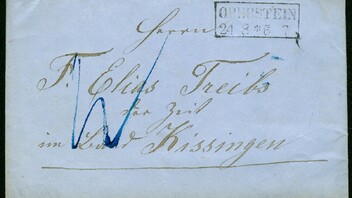 OBERSTEIN
Herrn
F. Elias Treibs
der Zeit
im Baad Kissingen